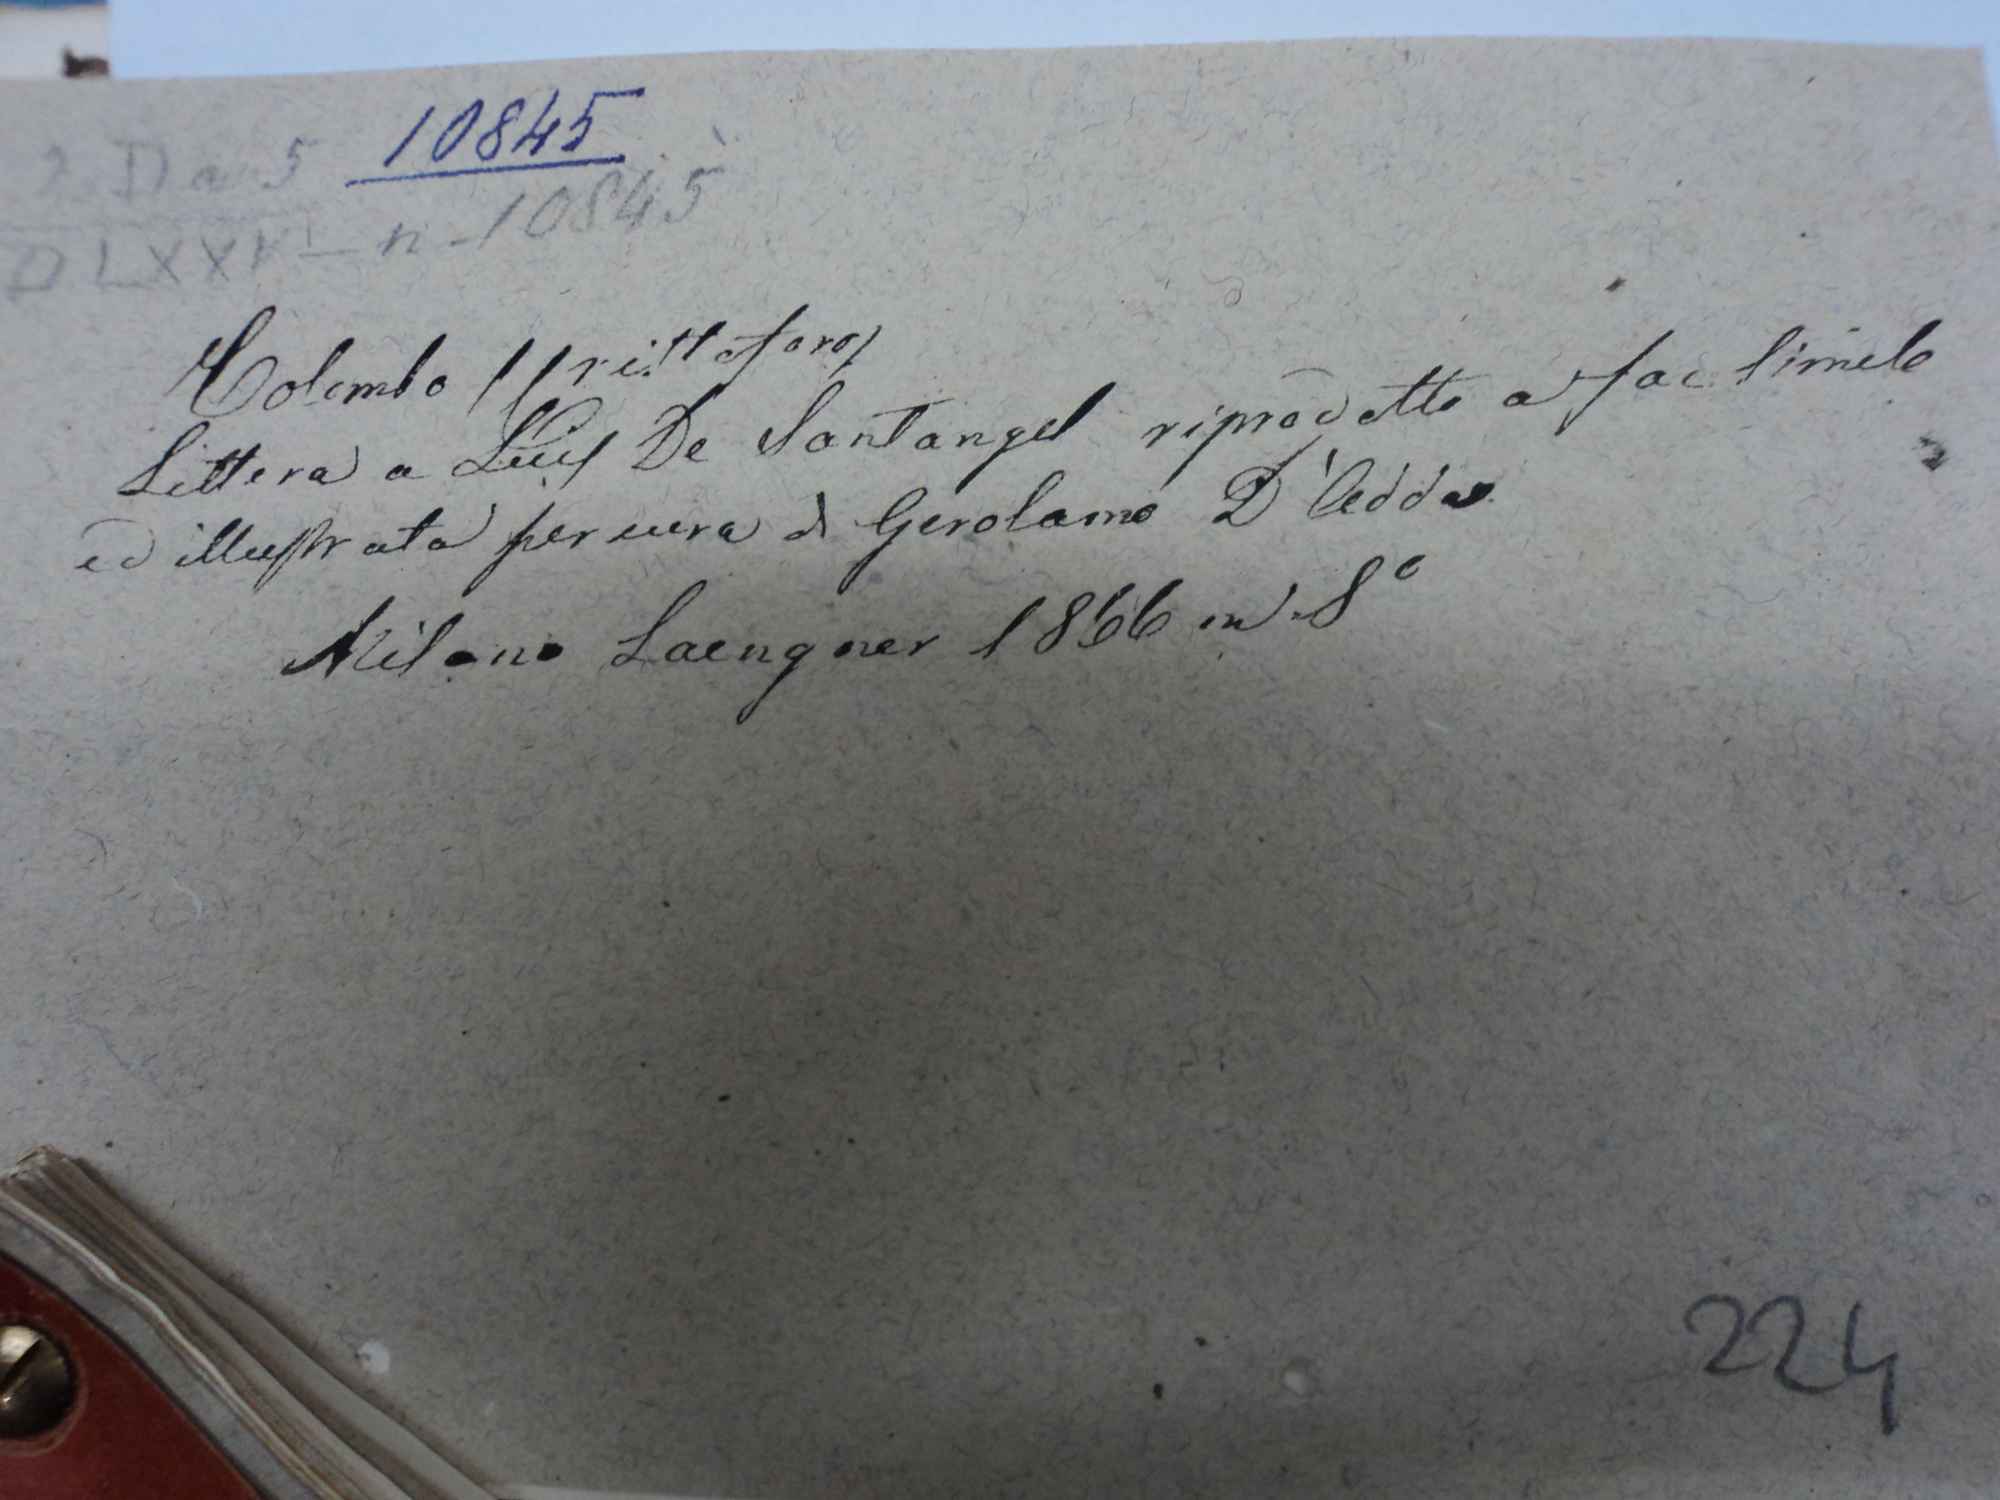 10845
2 Da 5
DLXXVI - n - 10845
Colombo (Cristoforo)
Lettera a Luis De Santangel riprodotta a fac simile
ed illustrata per cura di Gerolamo D'Adda
Milano Laengner 1866 in 8°
224